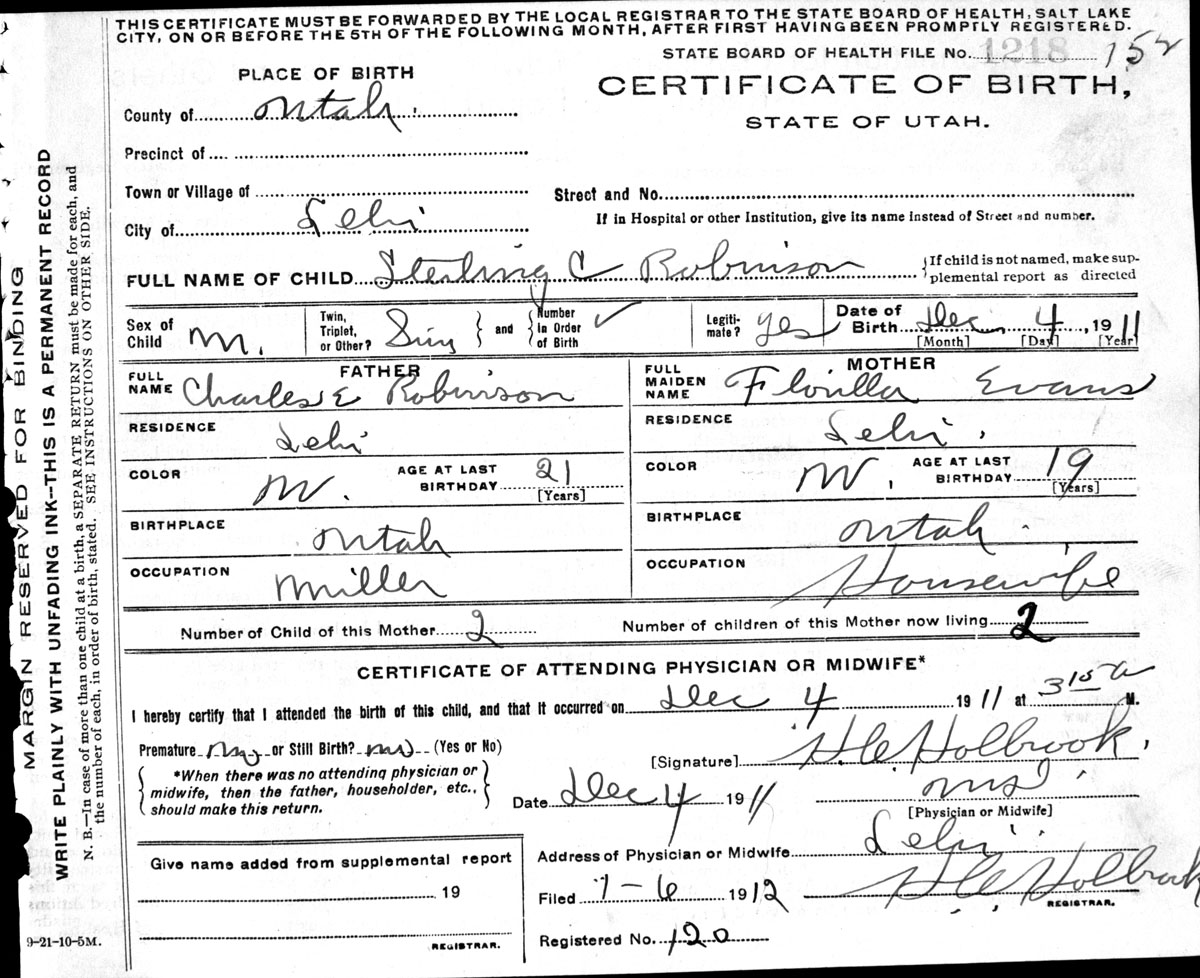 THIS CERTIFICATE MUST BE FORWARDED BY THE LOCAL REGISTRAR TO THE STATE BOARD OF HEALTH, SALT LAKE
CITY, ON OR BEFORE THE 5TH OF THE FOLLOWING MONTH, AFTER FIRST HAVING BEEN PROMPTLY REGISTERED.
STATE BOARD OF HEALTH FILE No. 1218 152
PLACE OF BIRTH
CERTIFICATE OF BIRTH,
STATE OF UTAH.
County of Utah.
Precinct of
Town or Village of
Street and No.
City of Lehi
If in Hospital or other Institution, give its name instead of Street and number.
FULL NAME OF CHILD Sterling C Robinson
{If child is not named, make sup-
plemental report as directed
Sex of Child M.
Twin, Triplet, or Other? Sing } and { Number in Order of Birth ✓
Legiti-mate? Yes
Date of Birth Dec. 4, 1911
[Month] [Day] [Year]
FATHER
FULL NAME Charles E Robinson
RESIDENCE Lehi
COLOR W. AGE AT LAST BIRTHDAY 21
[Years]
BIRTHPLACE Utah
OCCUPATION Miller
MOTHER
FULL MAIDEN NAME Florilla Evans
RESIDENCE Lehi.
COLOR W. AGE AT LAST BIRTHDAY 19
[Years]
BIRTHPLACE Utah.
OCCUPATION Housewife
Number of Child of this Mother 2
Number of children of this Mother now living 2
CERTIFICATE OF ATTENDING PHYSICIAN OR MIDWIFE*
I hereby certify that I attended the birth of this child, and that it occurred on Dec 4 1911 at 3 15 a M.
Premature no or Still Birth? no (Yes or No)
[Signature] H.C. Holbrook.
{ *When there was no attending physician or
midwife, then the father, householder, etc.,
should make this return. }
Date Dec 4 1911
MD.
[Physician or Midwife]
Give name added from supplemental report
19
REGISTRAR.
Address of Physician or Midwife Lehi.
Filed 1-6 1912
H.C. Holbrook
REGISTRAR.
Registered No. 120
9-21-10-5M.
MARGIN RESERVED FOR BINDING
WRITE PLAINLY WITH UNFADING INK--THIS IS A PERMANENT RECORD
N. B.—In case of more than one child at a birth, a SEPARATE RETURN must be made for each, and
the number of each, in order of birth, stated. SEE INSTRUCTIONS ON OTHER SIDE.